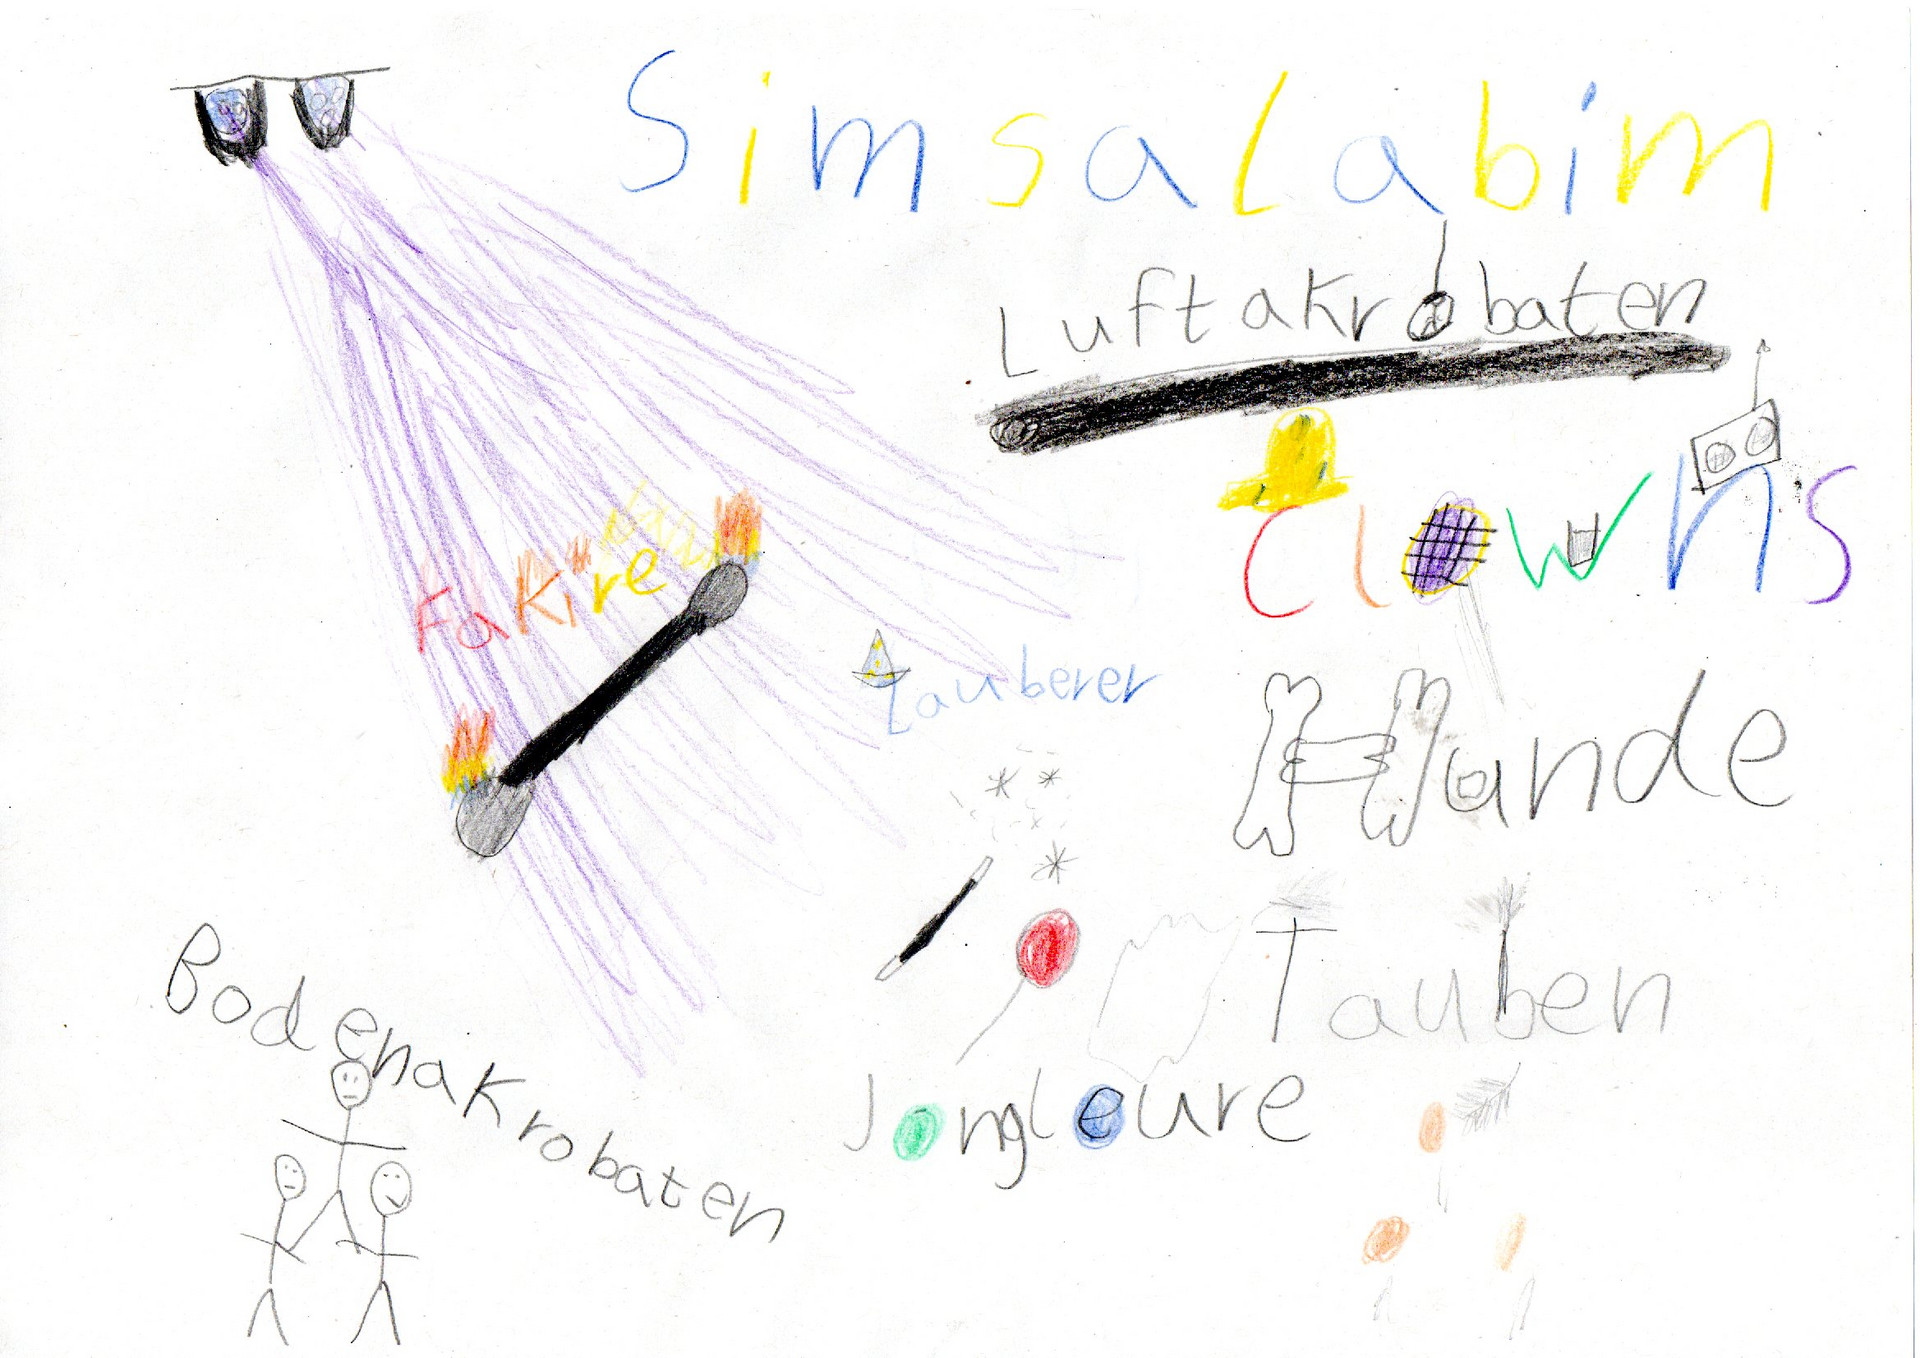 Simsalabim
Luftakrobaten
Clowns
Fakire
Zauberer
Hunde
Tauben
Jongleure
Bodenakrobaten